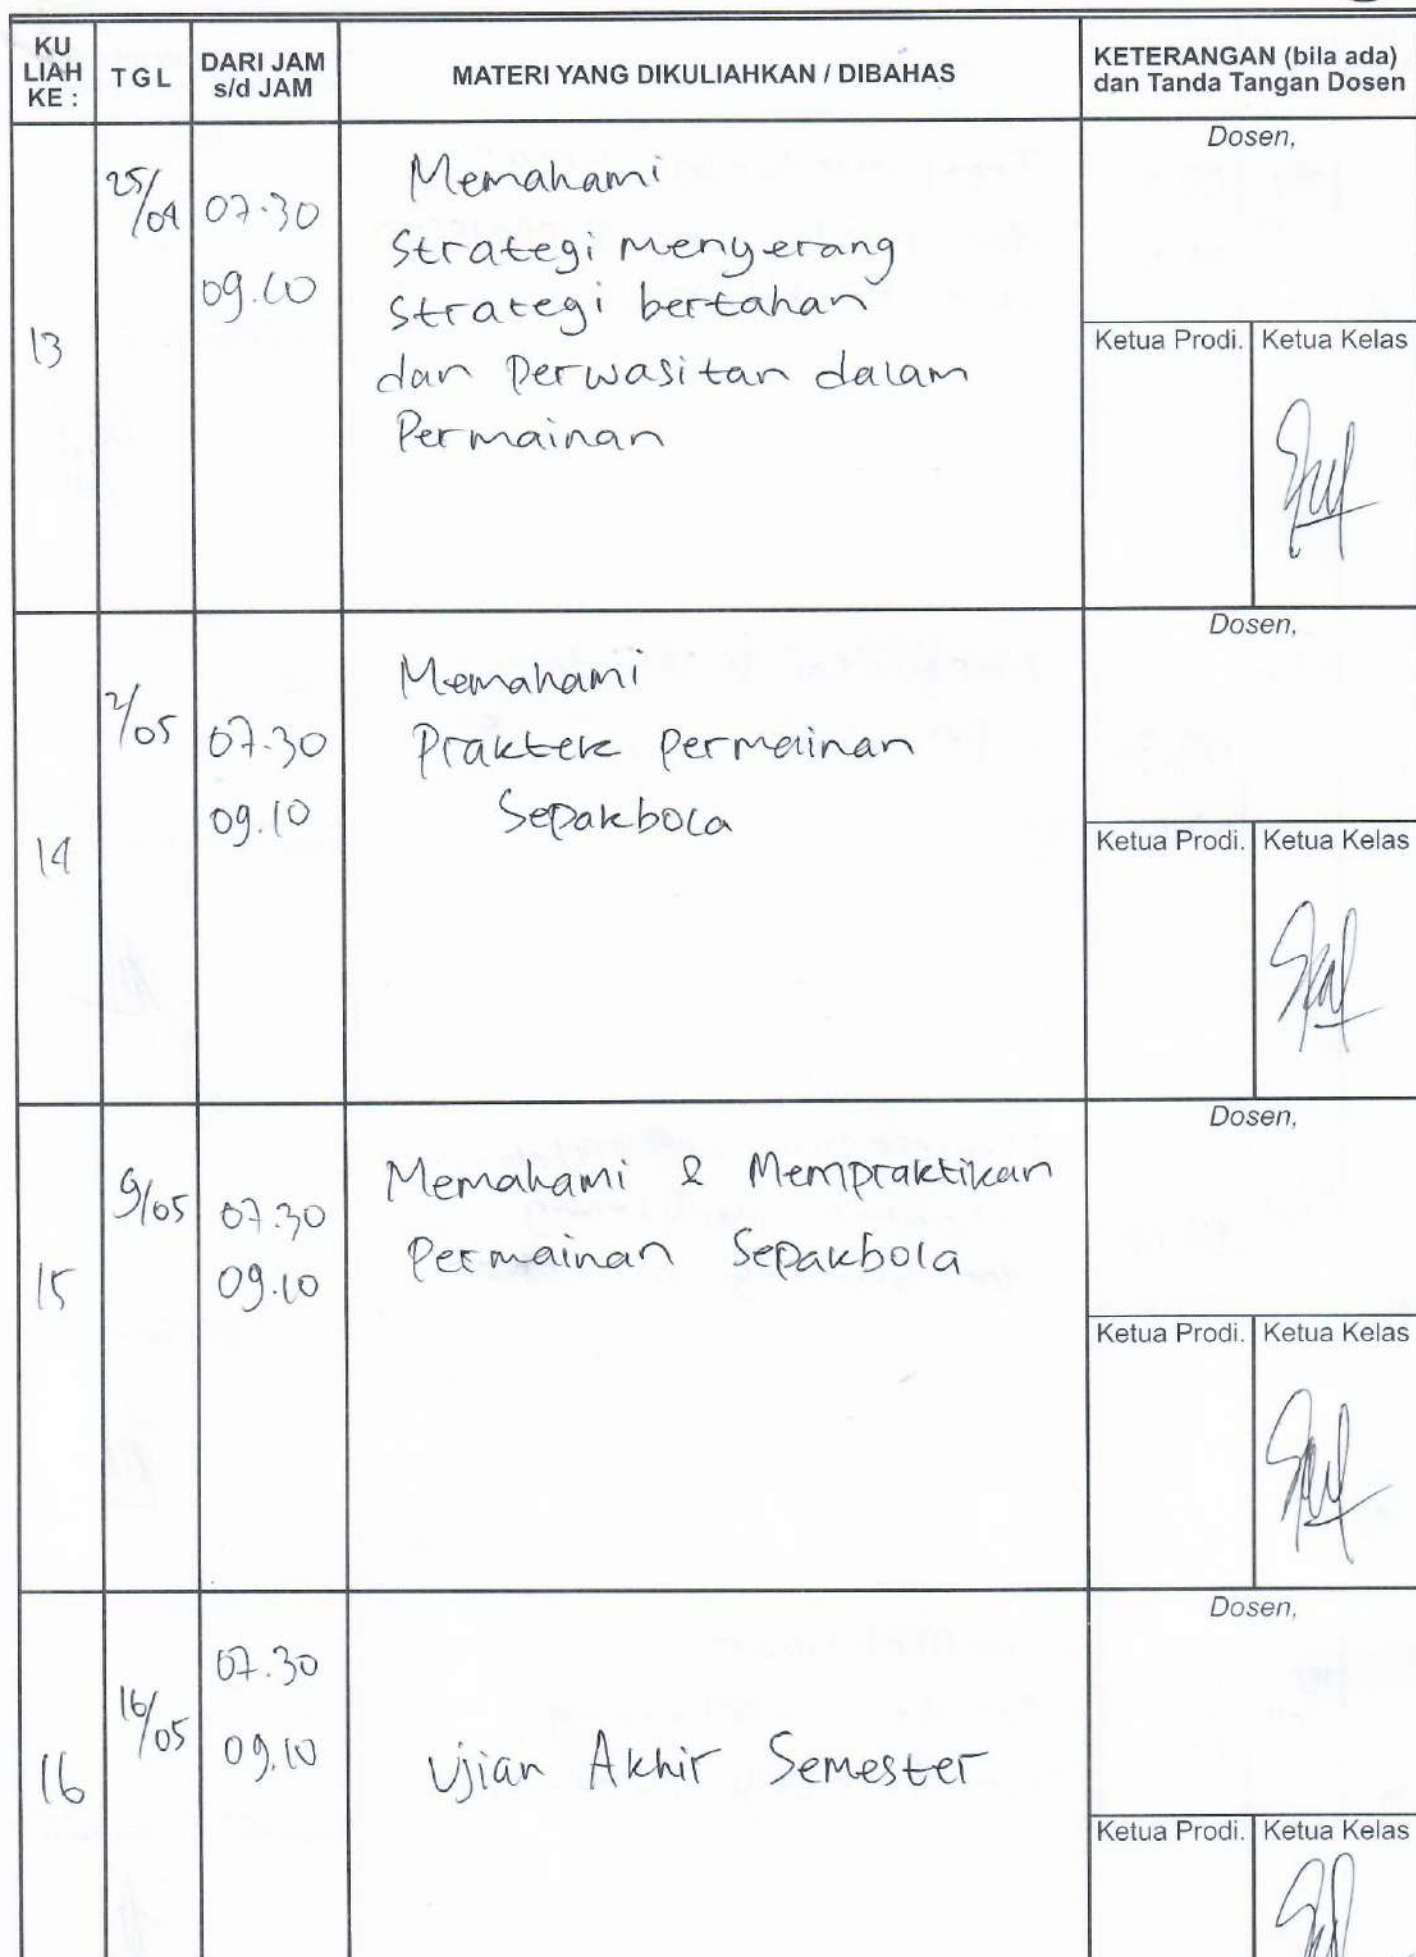 KU LIAH KE :
TGL
DARI JAM s/d JAM
MATERI YANG DIKULIAHKAN / DIBAHAS
KETERANGAN (bila ada) dan Tanda Tangan Dosen
13
25/04
07.30
09.10
Memahami
Strategi menyerang
Strategi bertahan
dan Perwasitan dalam
Permainan
Dosen,
Ketua Prodi.
Ketua Kelas
14
2/05
07.30
09.10
Memahami
Praktek Permainan
Sepakbola
Dosen,
Ketua Prodi.
Ketua Kelas
15
9/05
07.30
09.10
Memahami & Mempraktikan
Permainan Sepakbola
Dosen,
Ketua Prodi.
Ketua Kelas
16
16/05
07.30
09.10
Ujian Akhir Semester
Dosen,
Ketua Prodi.
Ketua Kelas